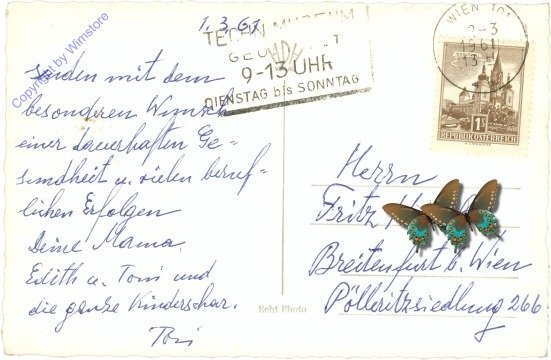 1.3.61
TECHN. MUSEUM
GEÖFFNET
9-13 UHR
DIENSTAG bis SONNTAG
WIEN 101
2-3
1961
13
1S
REPUBLIK ÖSTERREICH
Copyright by Wimstore
senden mit dem
besonderen Wunsch
einer dauerhaften Ge-
sundheit u. vielen beruf-
lichen Erfolgen
Deine Mama.
Edith u. Toni und
die ganze Kinderschar.
Toni
Bebt Photo
Herrn
Fritz
Breitenfurt b. Wien
Pölleritzsiedlung 266